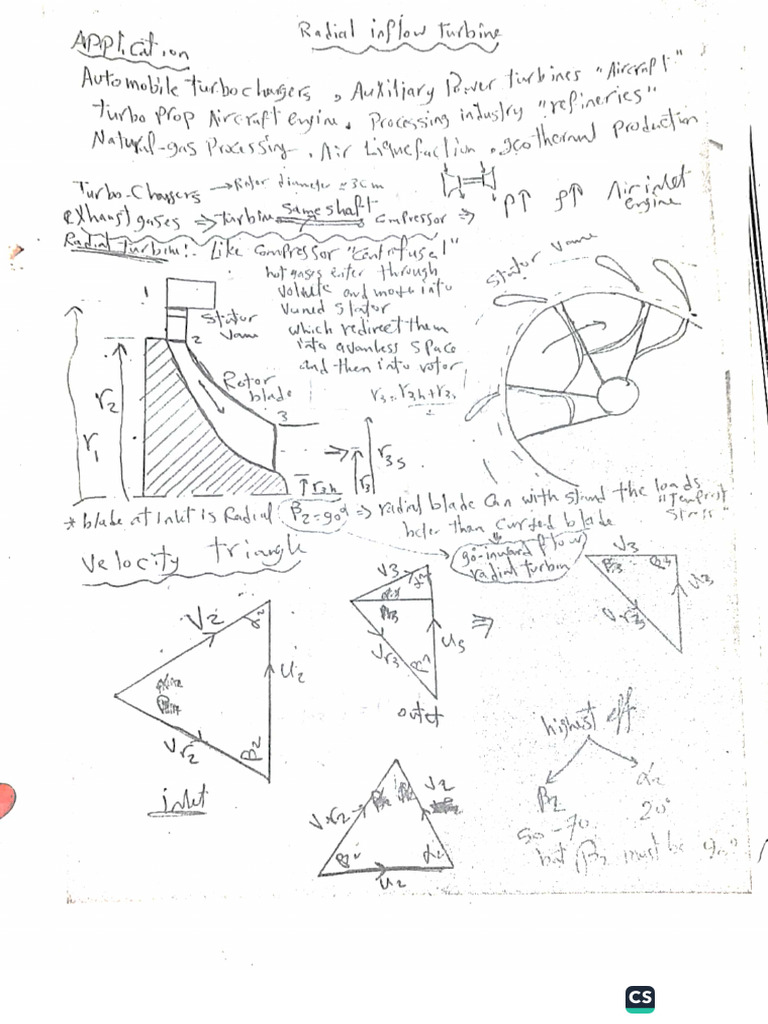 Radial inflow turbine
APPlication
Automobile turbochargers , Auxiliary Power turbines "Aircraft"
Turbo Prop Aircraft engine , Processing industry "refineries"
Natural-gas Processing , Air Liquefaction , geothermal production
Turbo-Chargers → Rotor diameter ≈ 3cm
exhaust gases ⇒ turbine same shaft compressor ⇒ P↑ ρ↑ Air inlet
engine
Radial turbine:. Like compressor "centrifugal"
hot gases enter through
volute and move into
vaned stator
which redirect them
into a vanless space
and then into rotor.
r3 = r3h + r3s
2
Stator vane
1
Stator
vane
2
Rotor
blade
3
r1
r2
r3
r3s
r3h
* blade at inlet is Radial β2=90° ⇒ radial blade can with stand the loads
better than curved blade
90-inward flow
radial turbin
Velocity triangle
V2
α2
U2
Vr2
β2
inlet
V3
β3
Vr3
U3
outet
⇒
V3
β3
α3
Vr3
U3
Vr2
V2
β2
α2
U2
highest eff
β2
α2
50-70
20°
but β2 must be 90°
CS